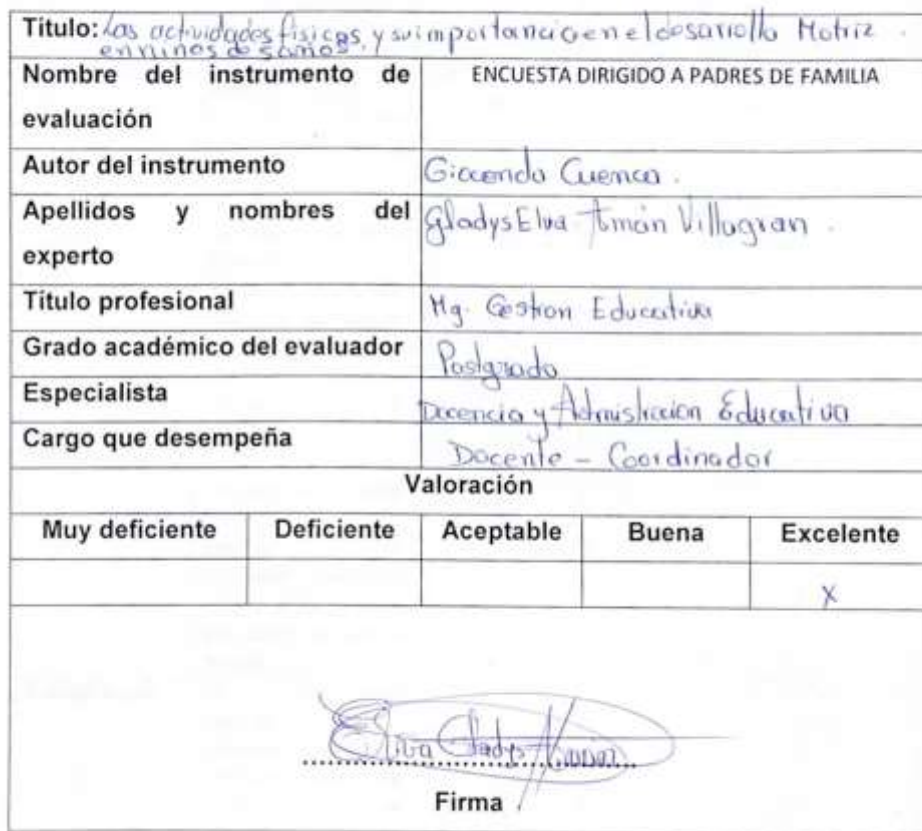 Titulo: Las actividades fisicas, y su importancia en el desarrollo Motriz.
en niños de 5 años.
Nombre del instrumento de
evaluación
ENCUESTA DIRIGIDO A PADRES DE FAMILIA
Autor del instrumento
Gioconda Cuenca.
Apellidos y nombres del
experto
Gladys Elva Amán Villagran.
Titulo profesional
Mg. Gestion Educativa
Grado académico del evaluador
Postgrado
Especialista
Docencia y Admistracion Educativa
Cargo que desempeña
Docente - Coordinador
Valoración
Muy deficiente Deficiente Aceptable Buena Excelente
X
Elva Gladys Amán
Firma